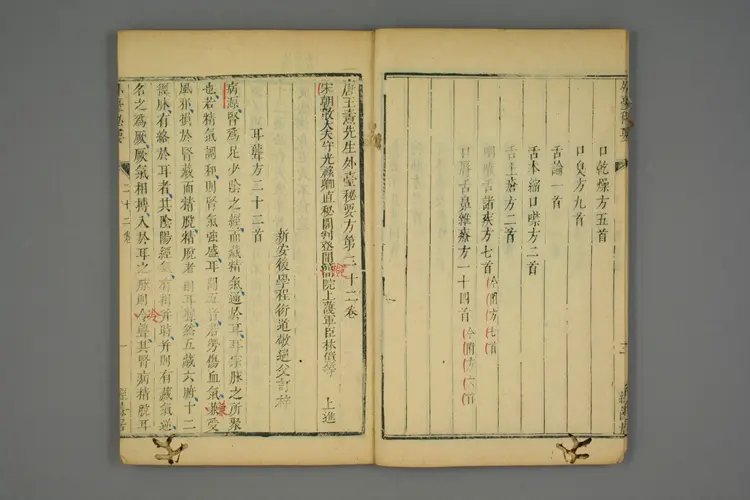 口乾燥方五首
口臭方九首
舌論一首
舌本縮口噤方二首
舌上瘡方二首
咽喉舌諸疾方七首今闕方七首
口唇舌鼻雜療方一十四首今闕方六首
外臺秘要
唐王燾先生外臺秘要方第二十二卷
宋朝散大夫守光祿卿直秘閣判登聞檢院上護軍臣林億等 上進
新安後學程衍道敬通父訂梓
耳聾方二十三首
病源腎為足少陰之經而藏精氣通於耳耳宗脉之所聚
也若精氣調和則腎氣強盛耳聞五音若勞傷血氣兼受
風邪損於腎藏而精脫精脫者則耳聾然五藏六腑十二
經脉有絡於耳者其陰陽經氣有相并時并則有藏氣逆
名之為厥厥氣相搏入於耳之脉則令聾其腎病精脫耳
外臺秘要 二十二卷 一